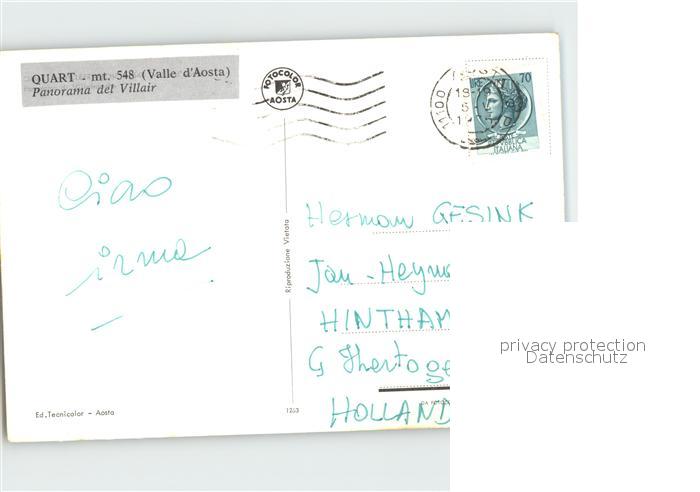 QUART - mt. 548 (Valle d'Aosta)
Panorama del Villair
FOTOCOLOR
AOSTA
11100
70
REPUBBLICA
ITALIANA
Ciao
irma
Riproduzione Vietata
Herman GESINK
Jan - Heym
HINTHAM
HOLLAND
privacy protection
Datenschutz
Ed. Tecnicolor - Aosta
1263